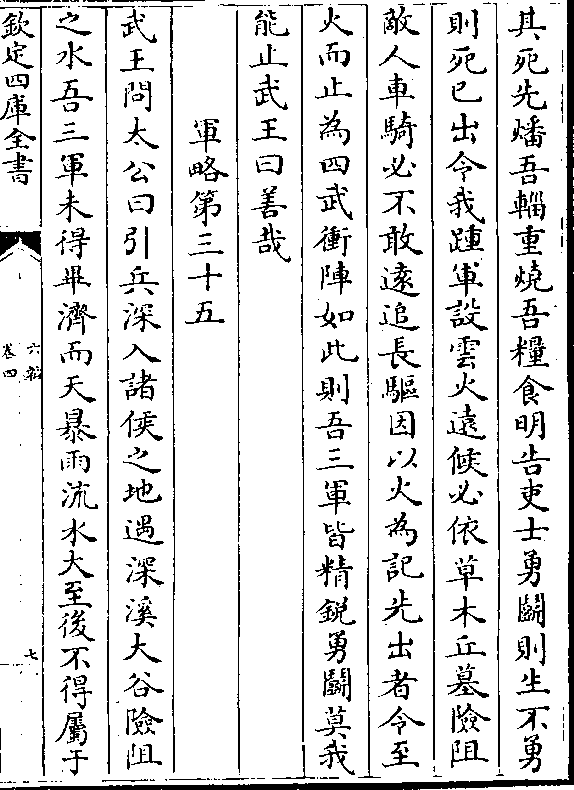 其死先燔吾輜重燒吾糧食明告吏士勇鬭則生不勇
則死已出令我踵軍設雲火遠候必依草木丘墓險阻
敵人車騎必不敢遠追長驅因以火為記先出者令至
火而止為四武衝陣如此則吾三軍皆精銳勇鬭莫我
能止武王曰善哉
軍略第三十五
武王問太公曰引兵深入諸侯之地遇深溪大谷險阻
之水吾三軍未得畢濟而天暴雨流水大至後不得屬于
欽定四庫全書
六韜
卷四
七